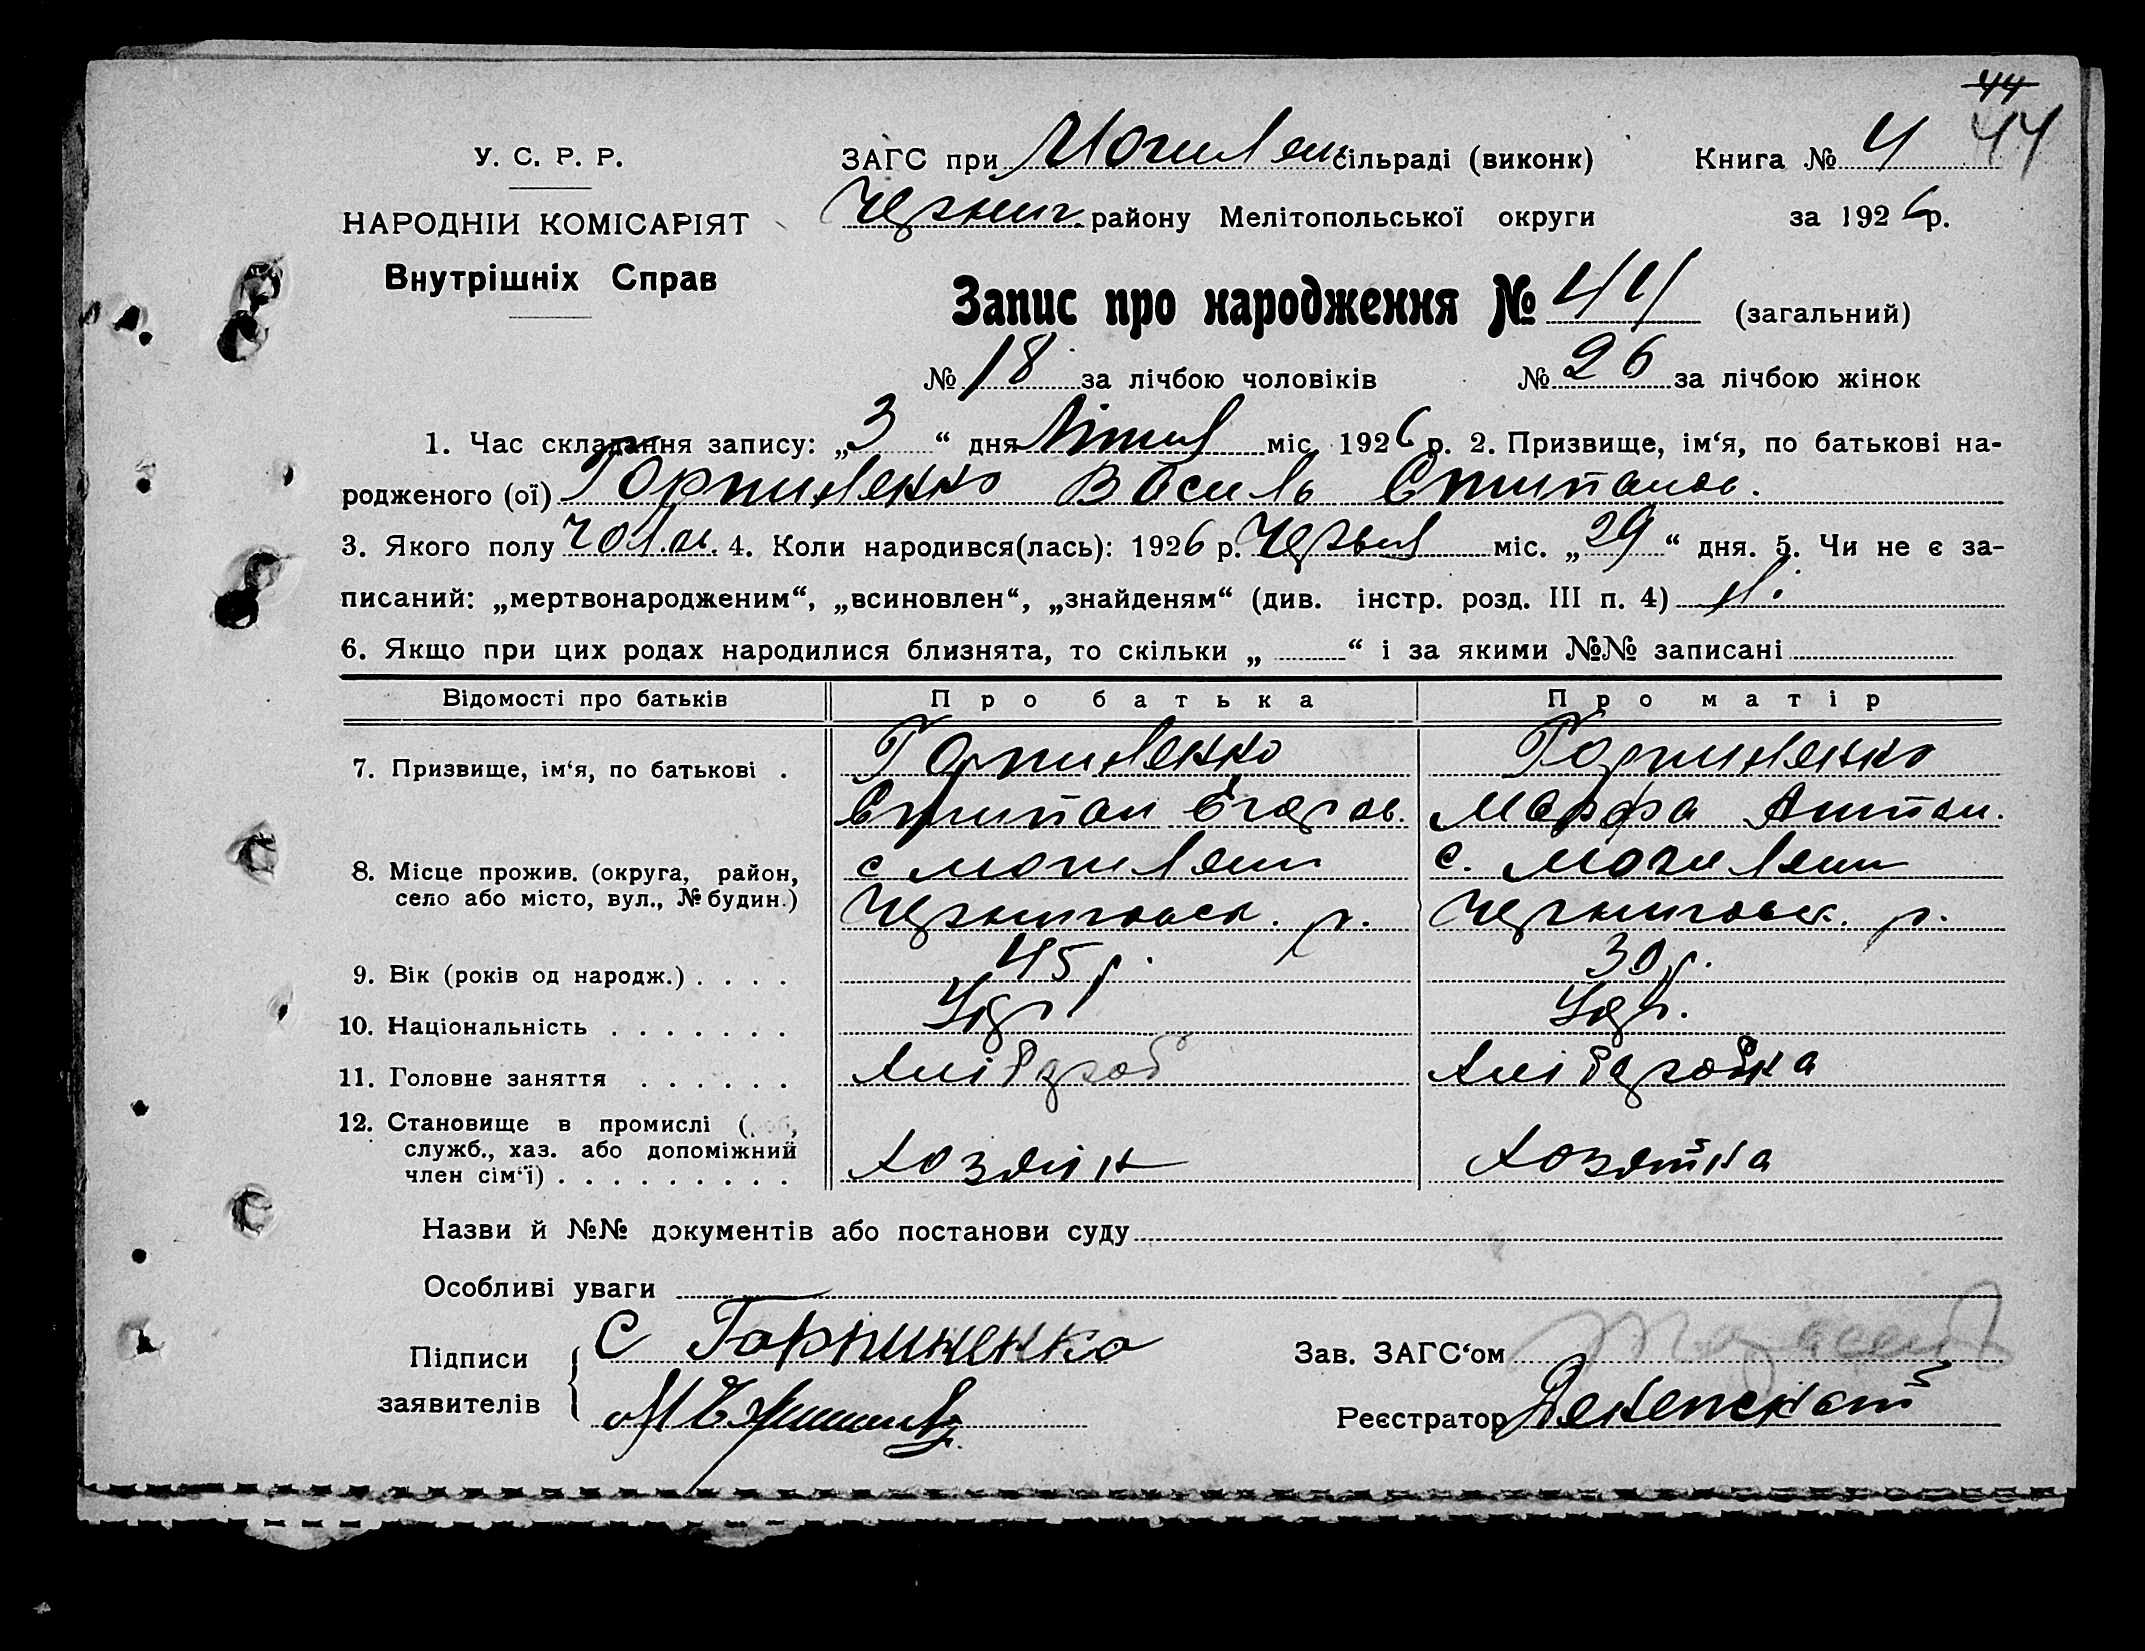 44
У. С. Р. Р. ЗАГС при Могилян сільраді (виконк) Книга № 4 44
НАРОДНІИ КОМІСАРІЯТ Черниг. району Мелітопольської округи за 1926 р.
Внутрішніх Справ
Запис про народження № 44 (загальний)
№ 18 за лічбою чоловіків № 26 за лічбою жінок
1. Час складання запису: „3“ дня Літня міс. 1926 р. 2. Призвище, ім‘я, по батькові на-
родженого (ої) Горпиненко Василь Стипанов.
3. Якого полу чол. 4. Коли народився(лась): 1926 р. Червня міс. „29“ дня. 5. Чи не є за-
писаний: „мертвонародженим“, „всиновлен“, „знайденям“ (див. інстр. розд. III п. 4)
6. Якщо при цих родах народилися близнята, то скільки „ “ і за якими №№ записані
Відомості про батьків Про батька Про матір
7. Призвище, ім‘я, по батькові . Горпиненко Горпиненко
Стипан Єгоров. Марфа Антон.
8. Місце прожив. (округа, район, с Могиляни с. Могиляни
село або місто, вул., № будин.) Черниговск. р. Черниговск. р.
9. Вік (років од народж.) . . . . 45 р. 30 р.
10. Національність . . . . . . . Укр Укр.
11. Головне заняття . . . . . . Хлібороб Хліборобка
12. Становище в промислі (
служб., хаз. або допоміжний Хозяїн Хозяйка
член сім‘ї) . . . . . . . . .
Назви й №№ документів або постанови суду
Особливі уваги
Підписи С Горпиненко Зав. ЗАГС‘ом
заявителів Реєстратор